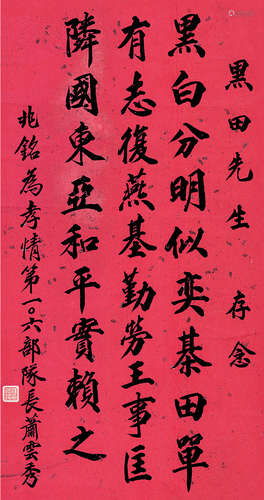 黑田先生 存念
黑白分明似奕棊田單
有志復燕基勤勞王事匡
隣國東亞和平實賴之
兆銘為孝情第一〇六部隊長蕭雲秀